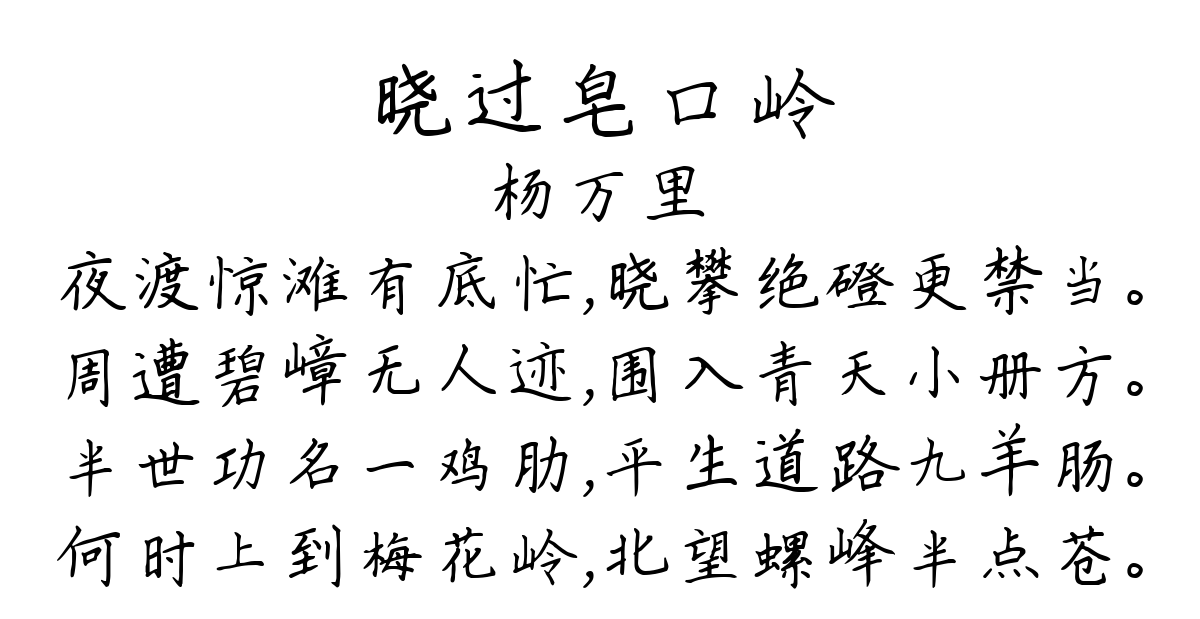 晓过皂口岭
杨万里
夜渡惊滩有底忙,晓攀绝磴更禁当。
周遭碧嶂无人迹,围入青天小册方。
半世功名一鸡肋,平生道路九羊肠。
何时上到梅花岭,北望螺峰半点苍。